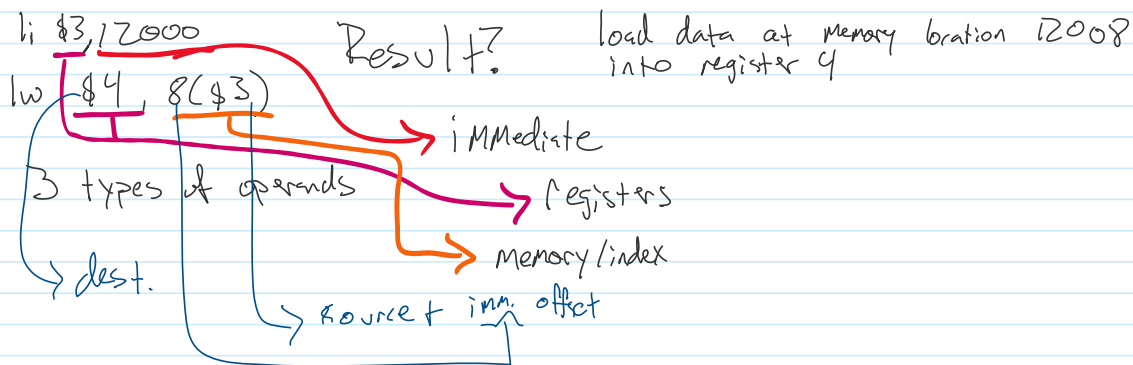 li $3, 12000
Result?
load data at memory location 12008
into register 4
lw $4, 8($3)
immediate
3 types of operands
registers
memory/index
dest.
source + imm. offset